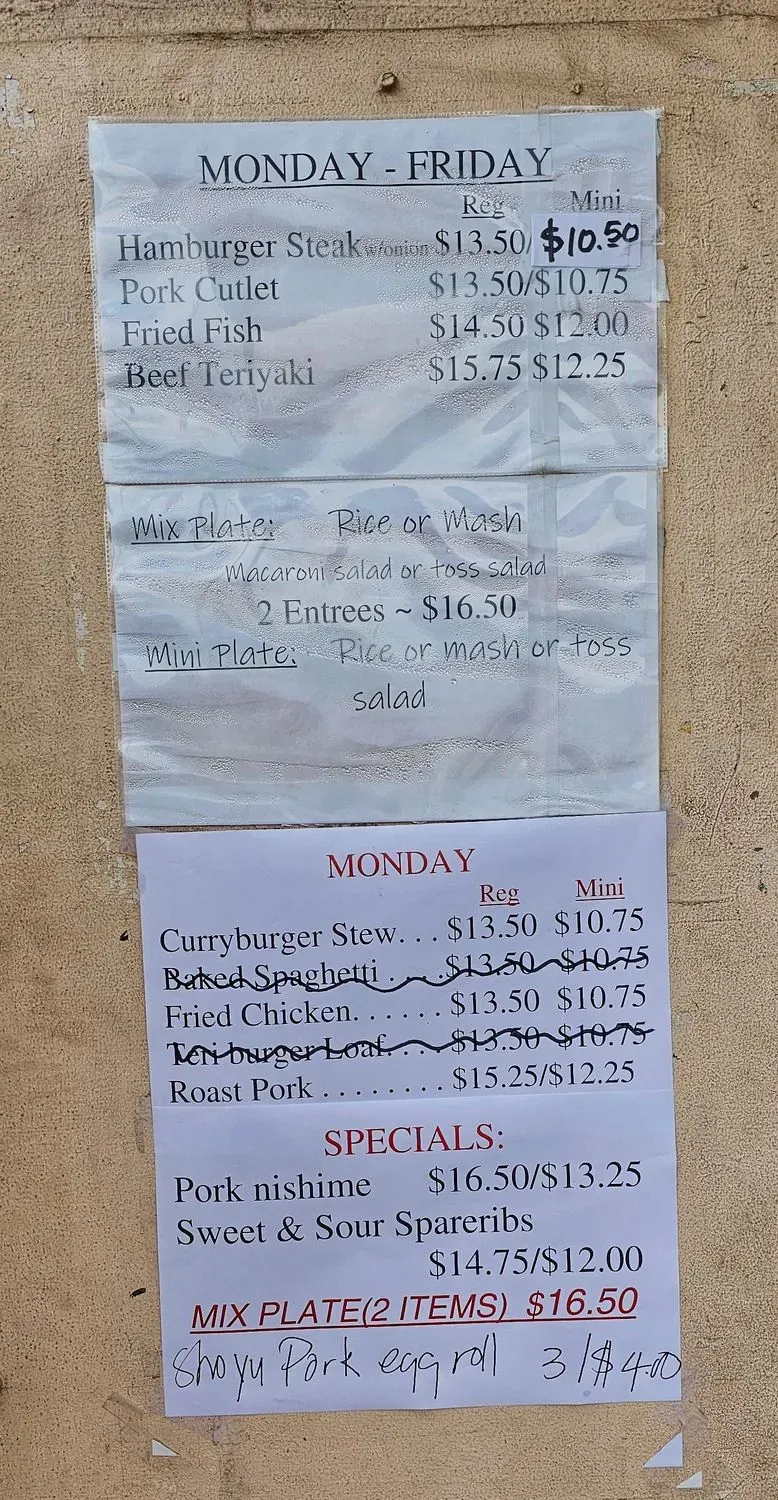 MONDAY - FRIDAY
Reg Mini
Hamburger Steak w/onion $13.50/ $10.50
Pork Cutlet $13.50/$10.75
Fried Fish $14.50 $12.00
Beef Teriyaki $15.75 $12.25
Mix Plate: Rice or Mash
Macaroni salad or toss salad
2 Entrees ~ $16.50
Mini Plate: Rice or mash or toss
salad
MONDAY
Reg Mini
Curryburger Stew. . . $13.50 $10.75
Baked Spaghetti . . . . $13.50 $10.75
Fried Chicken. . . . . . $13.50 $10.75
Teri burger Loaf. . . . $13.50 $10.75
Roast Pork . . . . . . . . $15.25/$12.25
SPECIALS:
Pork nishime $16.50/$13.25
Sweet & Sour Spareribs
$14.75/$12.00
MIX PLATE(2 ITEMS) $16.50
Shoyu Pork egg roll 3/$4.00